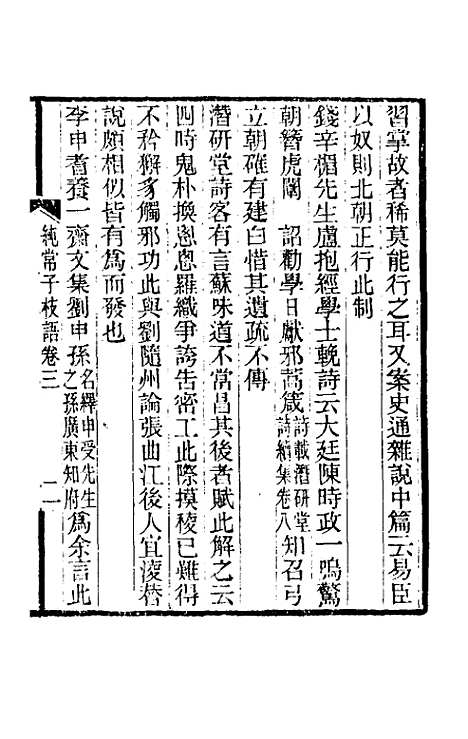 習掌故者稀莫能行之耳又案史通雜說中篇云易臣
以奴則北朝正行此制
錢辛楣先生盧抱經學士輓詩云大廷陳時政一鳴驚
朝簪虎闈　詔勸學日獻邪蒿箴詩載潛研堂詩續集卷八知召弓
立朝確有建白惜其遺疏不傳
潛研堂詩客有言蘇味道不當昌其後者賦此解之云
四時鬼朴換悤悤羅織爭誇告密工此際摸稜已難得
不矜獬豸觸邪功此與劉隨州論張曲江後人宜淩替
說頗相似皆有爲而發也
李申耆養一齋文集劉申孫名繹申受先生之孫廣東知府爲余言此
純常子枝語卷三　二